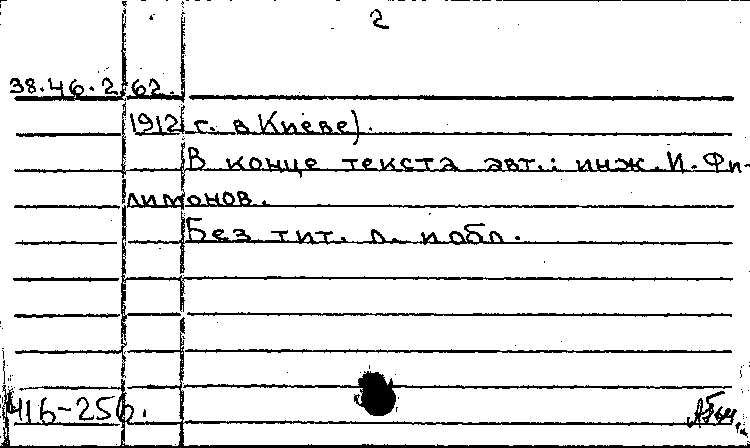 2
38.46.2.62.
1912 г. в Киеве).
В конце текста авт.: инж. И. Фи-
лимонов.
Без тит. л. и обл.
416-256.